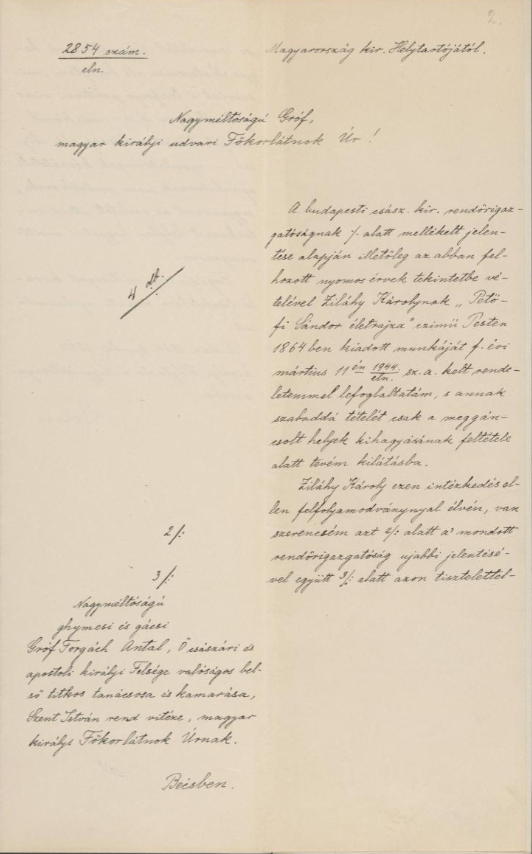 2.
2854 szám.
eln.
Magyarország kir. Helytartójától.
Nagyméltóságú Gróf,
magyar királyi udvari Főkorlátnok Úr!
A budapesti csász. kir. rendőrigaz-
gatóságnak 1/. alatt mellékelt jelen-
tése alapján Metőleg az abban fel-
hozott nyomos érvek tekintetbe vé-
telével Zilahy Károlynak „Petö-
fi Sándor életrajza" czimü Pesten
1864ben kiadott munkáját f. évi
március 11én 1944/eln. sz. a. kelt rende-
letemmel lefoglaltatám, s annak
szabaddá tételét csak a meggán-
csolt helyek kihagyásának feltétele
alatt tevém kilátásba.
Ziláhy Károly ezen intézkedés el-
len felfolyamodványnyal élvén, van
szerencsém azt 2/: alatt a' mondott
rendőrigazgatóság ujabbi jelentésé-
vel együtt 3/: alatt azon tisztelettel-
4 db.
2/:
3/:
Nagyméltóságú
ghymesi és gácsi
Gróf Forgách Antal, Ő császári és
apostoli királyi Felsége valóságos bel-
ső titkos tanácsosa és kamarása,
Szent István rend vitéze, magyar
királyi Főkorlátnok Úrnak.
Bécsben.